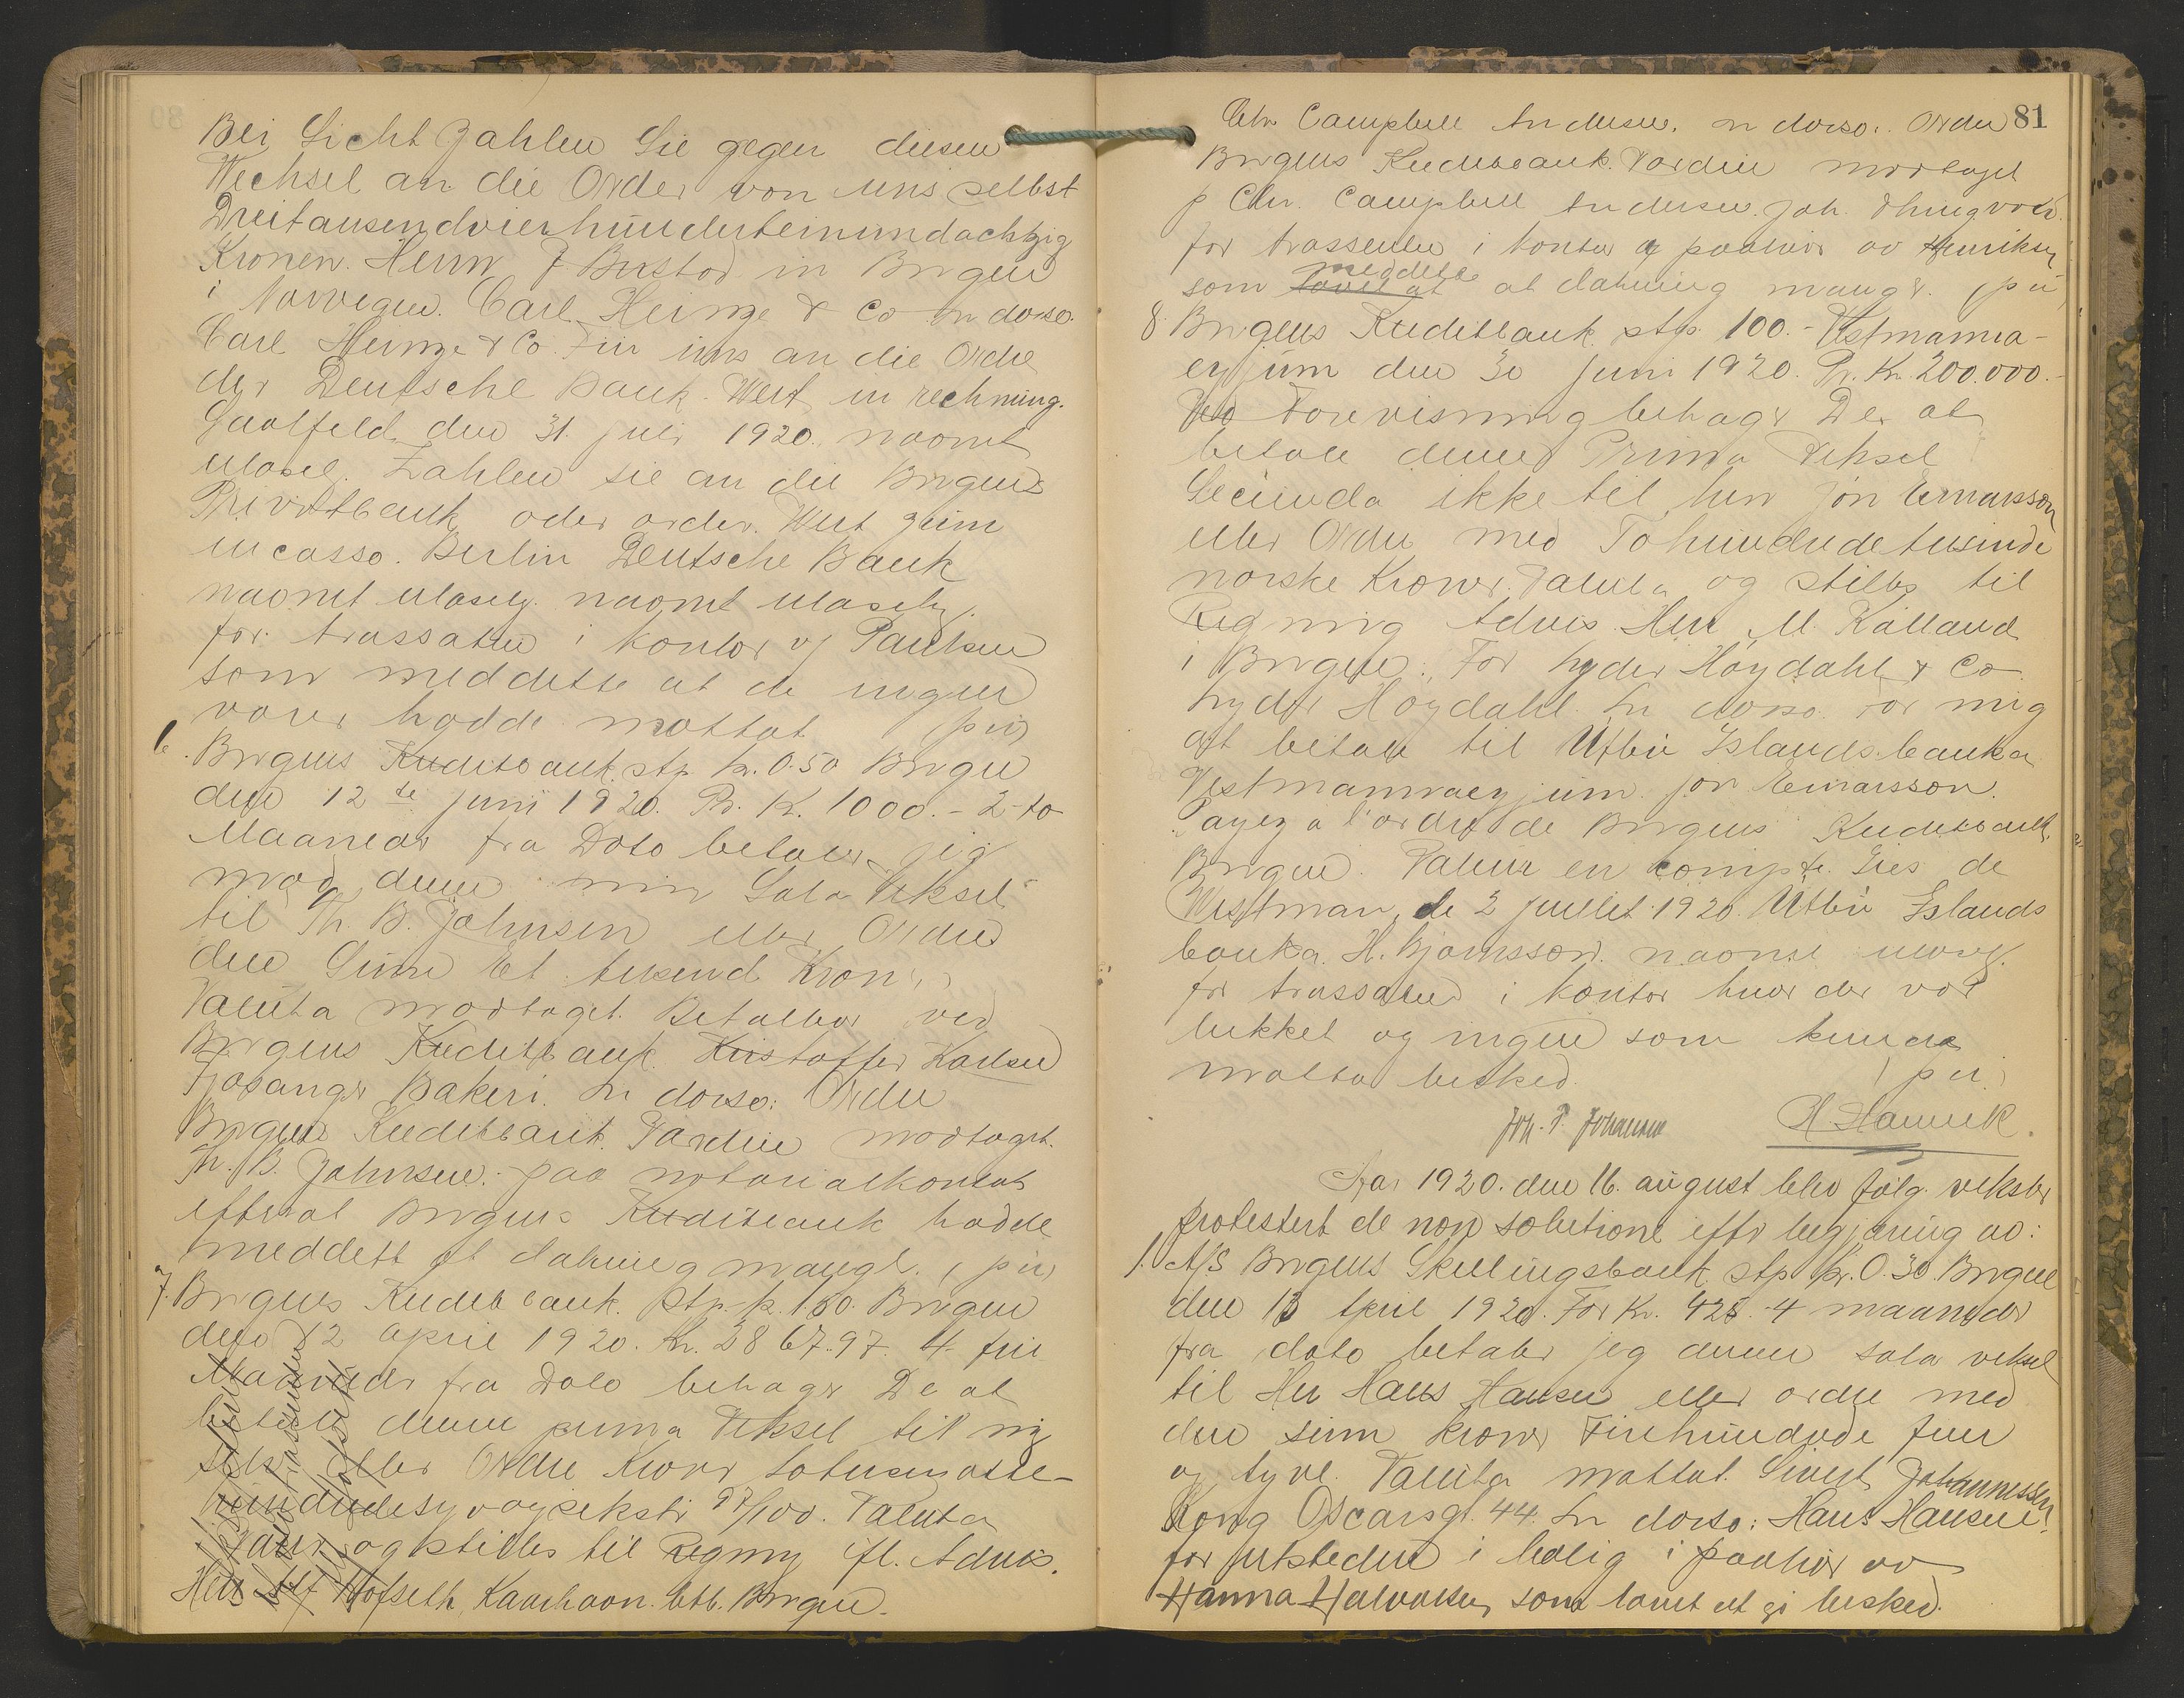 Bei Sicht Zahlen Sie gegen diesen
Wechsel an die Order von uns selbst
Dreitausendvierhunderteinundachtzig
Kronen. Herrn J Birstad in Bergen
i Norwegen. Carl Heinze & Co In dorso.
Carl Heinze & Co. Für uns an die Ordre
der Deutsche Bank. Wert in rechnung.
Saalfeld den 31. juli 1920. navnet
ulæsel. Zahlen sie an die Bergens
Privatbank oder order. Wert zum
incasso. Berlin Deutsche Bank
navnet ulæselig. navnet ulæselig.
for trassaten i kontor v/ Paulsen
som meddelte at de ingen
varer hadde mottat (pei)
6. Bergens Kreditbank stp kr. 0.50 Bergen
den 12te juni 1920. Pr. Kr. 1000.- 2-to
Maaneder fra Dato betaler jeg
mod denne min Sola Veksel
til Th. B. Johnsen eller Ordre
den Sum Et tusend Kroner
Valuta modtaget. Betalbar ved
Bergens Kreditbank. Kristoffer Karlsen
Fjøsanger Bakeri. In dorso: Ordre
Bergens Kreditbank. Værdien modtaget.
Th. B. Johnsen. paa notarialkontoret
efterat Bergens Kreditbank hadde
meddelt at dækning mangl. (pei)
7. Bergens Kreditbank. Stp. kr. 1.50. Bergen
den 12 april 1920. Kr. 2867.97. 4 fire
Maaneder fra Dato behager De at
betale denne prima Veksel til mig
selv eller Ordre Kroner totusenotte-
hundredesyvogseksti 97/100. Valuta
og stilles til Regning ifl. Advis.
Herr Alf Hofseth, Kaarhavn. Bergen.
81
Chr Campbell Andersen. In dorso. Ordre
Bergens Kreditbank. Værdien modtaget
p Chr. Campbell Andersen. Joh.
for trassenten i kontor og paahør av Henriksen
som meddelte at dækning mangler. (pei)
8. Bergens Kreditbank stp. 100.- Vestmanna-
eyjum den 30 Juni 1920. Pr. Kr. 200.000.-
Ved Forevisning behager De at
betale denne Prima Veksel
Secunda ikke til herr Jón Einarsson
eller Ordre med Tohundredetusinde
norske Kroner. Valuta og stilles til
Regning Advis. Herr M. Kålland
i Bergen. For Lyder Høydahl & Co
Lyder Høydahl. In dorso. For mig
at betale til Útbú Islandsbanka
Vestmannaeyjum. Jón Einarsson.
Payez a l'ordre de Bergens Kreditbank
Bergen. Valeur en compte. Iles de
Westman, le 2 juillet 1920. Útbú Islands
banka. H. Bjarnsson. navnet ulæsel.
for trassaten i kontor hvor der var
lukket og ingen som kunde
motta besked. (pei)
Joh. P. Johansen H Hannek.
Aar 1920. den 16. august blev følg. veksler
protestert de non solutione efter begjæring av:
1. A/S Bergens Skillingsbank stp. kr. 0.30. Bergen
den 13 April 1920. For Kr. 425. 4 maaneder
fra dato betaler jeg denne sola veksel
til Hr Hans Hansen eller ordre med
den sum kroner Firehundrede fem
og tyve. Valuta mottat. Sivert Johannessen
Kong Oscarsgt. 44. In dorso: Hans Hansen.
for utstederen i bolig i paahør av
Hanna Halvorsen som lovet at gi besked.